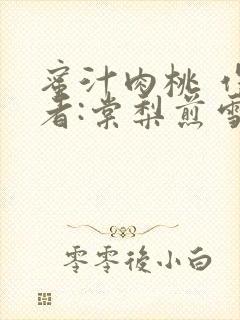 蜜汁肉桃
者:棠梨煎雪
零零後小白